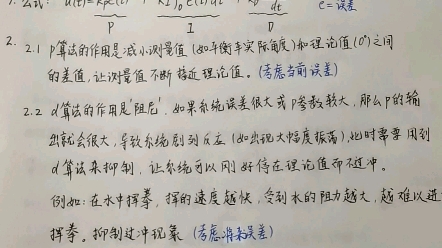 1. 公式: u(t) = kpe(t) + kI∫₀ e(t)dt + kD dt e=误差
P I D
2. 2.1 P算法的作用是减小测量值(如平衡车实际角度)和理论值(0°)之间
的差值,让测量值不断接近理论值。(考虑当前误差)
2.2 d算法的作用是'阻尼'。如果系统误差很大或P参数较大,那么P的输
出就会很大,导致系统剧烈反应(如出现大幅度振荡),此时需要用到
d算法来抑制,让系统可以刚好停在理论值而不过冲。
例如:在水中挥拳,挥的速度越快,受到水的阻力越大,越难以进
挥拳。抑制过冲现象(考虑将来误差)